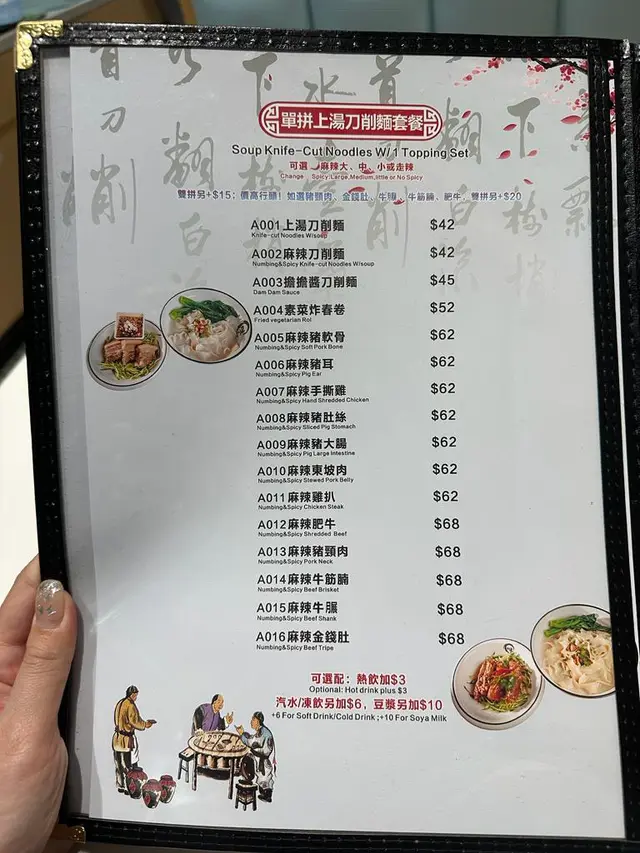 單拼上湯刀削麵套餐
Soup Knife-Cut Noodles W/1 Topping Set
可選 麻辣大、中、小或走辣
Change Spicy:Large,Medium,little or No Spicy
雙拼另+$15；價高行頭！如選豬頸肉、金錢肚、牛𦟌、牛筋腩、肥牛，雙拼另+$20
A001上湯刀削麵 $42
Knife-cut Noodles W/soup
A002麻辣刀削麵 $42
Numbing&Spicy Knife-cut Noodles W/soup
A003擔擔醬刀削麵 $45
Dam Dam Sauce
A004素菜炸春卷 $52
Fried vegetarian Rol
A005麻辣豬軟骨 $62
Numbing&Spicy Soft Pork Bone
A006麻辣豬耳 $62
Numbing&Spicy Pig Ear
A007麻辣手撕雞 $62
Numbing&Spicy Hand Shredded Chicken
A008麻辣豬肚絲 $62
Numbing&Spicy Sliced Pig Stomach
A009麻辣豬大腸 $62
Numbing&Spicy Pig Large Intestine
A010麻辣東坡肉 $62
Numbing&Spicy Stewed Pork Belly
A011麻辣雞扒 $62
Numbing&Spicy Chicken Steak
A012麻辣肥牛 $68
Numbing&Spicy Shredded Beef
A013麻辣豬頸肉 $68
Numbing&Spicy Pork Neck
A014麻辣牛筋腩 $68
Numbing&Spicy Beef Brisket
A015麻辣牛𦟌 $68
Numbing&Spicy Beef Shank
A016麻辣金錢肚 $68
Numbing&Spicy Beef Tripe
可選配：熱飲加$3
Optional: Hot drink plus $3
汽水/凍飲另加$6，豆漿另加$10
+6 For Soft Drink/Cold Drink ;+10 For Soya Milk